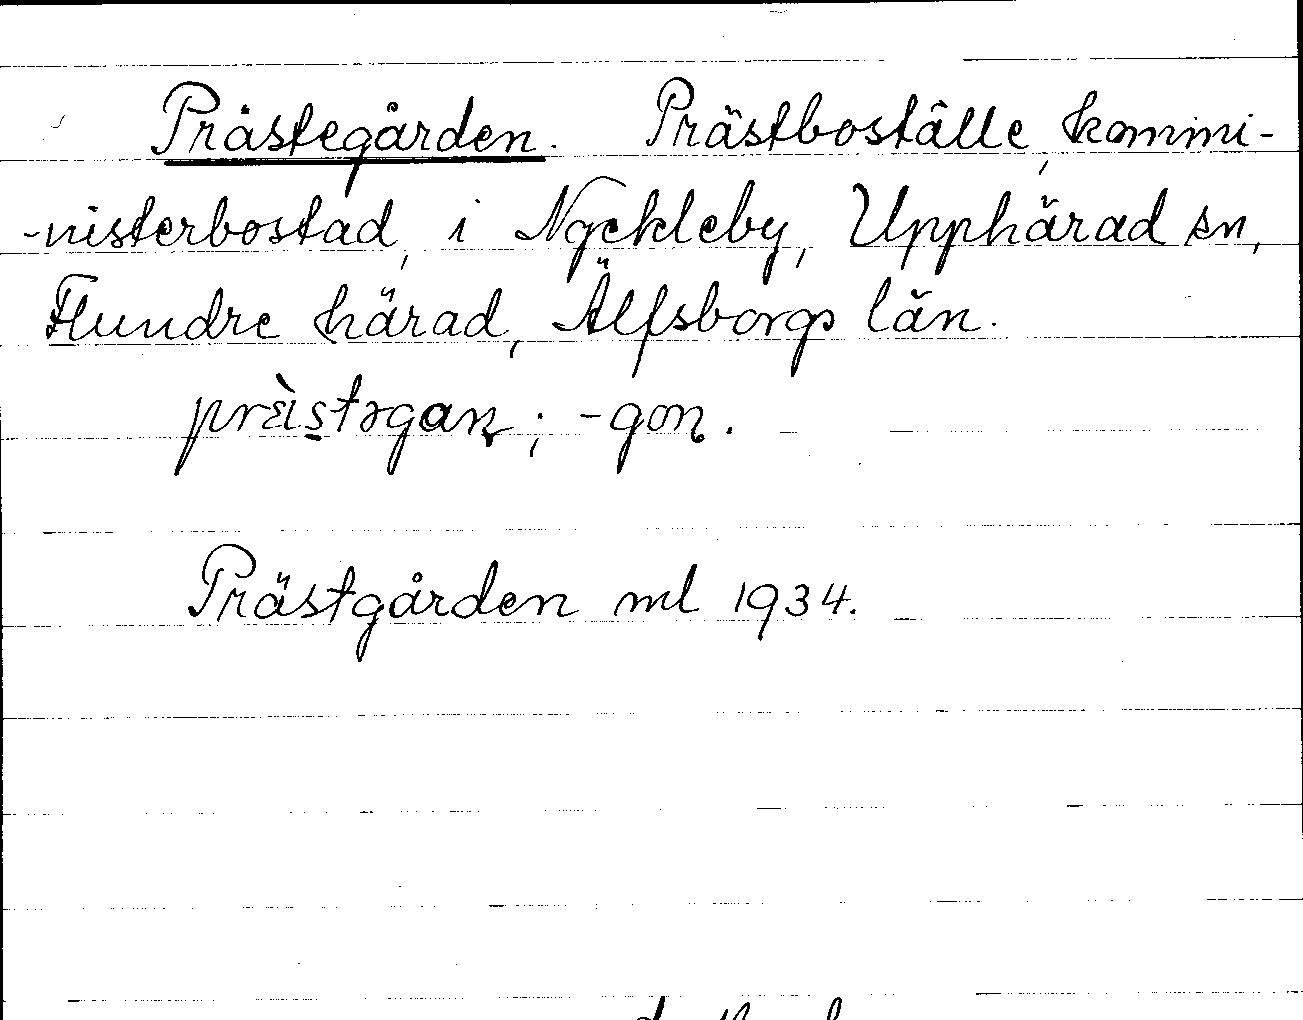 Prästegården. Prästboställe, kommi-
-nisterbostad, i Nyckleby, Upphärad sn,
Flundre härad, Älfsborgs län.
prɛ̀istəgaɳ; -gɔɳ.
Prästgården ml 1934.